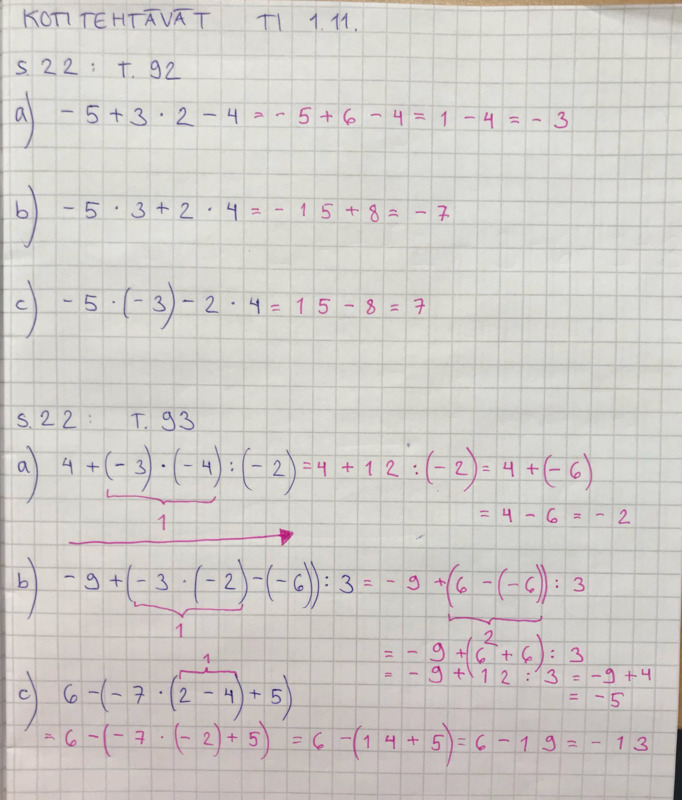 KOTITEHTÄVÄT TI 1.11.
S.22: T.92
a) -5+3·2-4=-5+6-4=1-4=-3
b) -5·3+2·4=-15+8=-7
c) -5·(-3)-2·4=15-8=7
S.22: T.93
a) 4+(-3)·(-4):(-2)=4+12:(-2)=4+(-6)
1
=4-6=-2
b) -9+(-3·(-2)-(-6)):3=-9+(6-(-6)):3
1
2
=-9+(6+6):3
=-9+12:3=-9+4
=-5
1
c) 6-(-7·(2-4)+5)
=6-(-7·(-2)+5)=6-(14+5)=6-19=-13